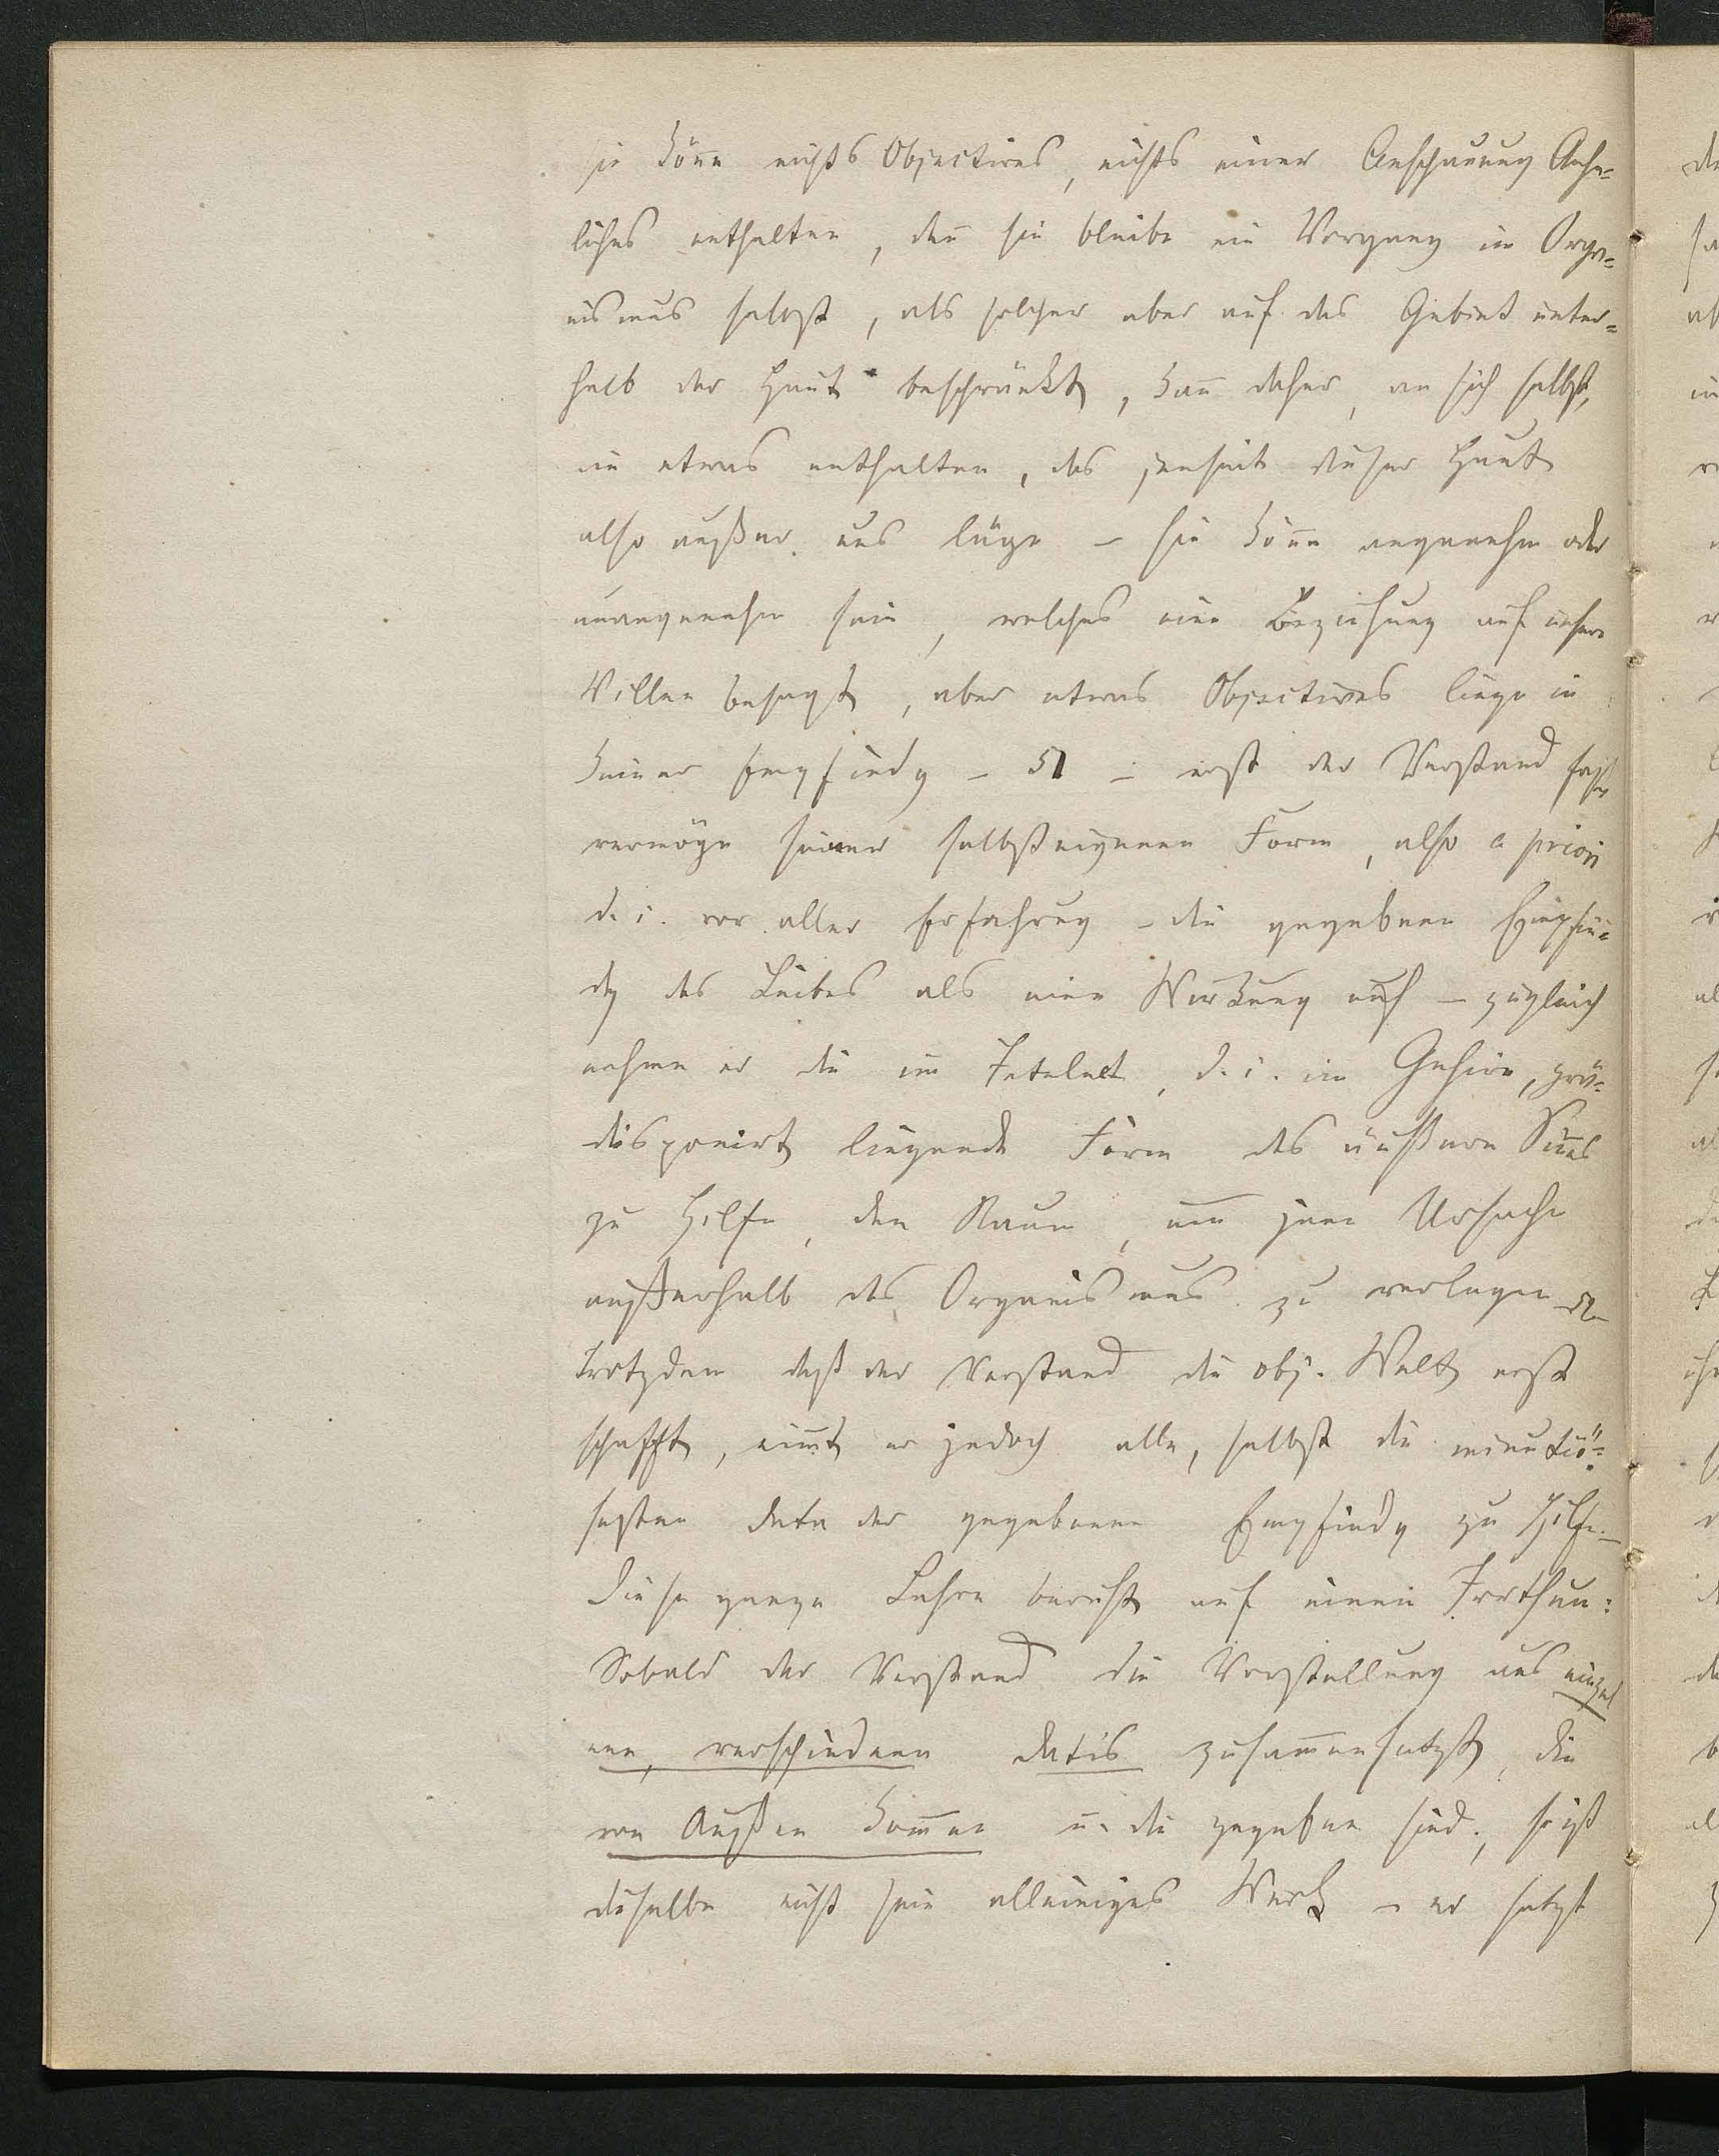 sie köne nichts Objectives, nichts einer Anschauung Aehn=
liches enthalten, den sie bleibe ein Vorgang im Orga=
nismus selbst, als solcher aber auf das Gebiet unter=
halb der Haut beschränkt, kan daher, an sich selbst,
nie etwas enthalten, das jenseit dieser Haut
also außer uns läge – sie köne angenehm oder
unangenehm sein, welches eine Beziehung auf unsern
Willen besagt, aber etwas Objectives liege in
keiner Empfindg – 51 – erst der Verstand fasse
vermöge seiner selbsteigenen Form, also a priori
d. i. vor aller Erfahrung – die gegebene Empfin=
dg des Leibes als eine Wirkung auf – zugleich
nehme er die im Intelect, d. i. im Gehirn, prä=
disponirt liegende Form des äußern Sines
zu Hilfe, den Raum, um jene Ursache
außerhalb des Organismus zu verlegen – 52 –
Trotzdem daß der Verstand die obj. Welt erst
schafft, nimt er jedoch alle, selbst die minutiö=
sesten Data der gegebenen Empfindg zu Hilfe. –
Diese ganze Lehre beruht auf einem Irrthum:
Sobald der Verstand die Vorstellung aus einzel
nen, verschiedenen datis zusamensetzt, die
von Außen komen u. die gegeben sind, so ist
dieselbe nicht sein alleiniges Werk – er setzt